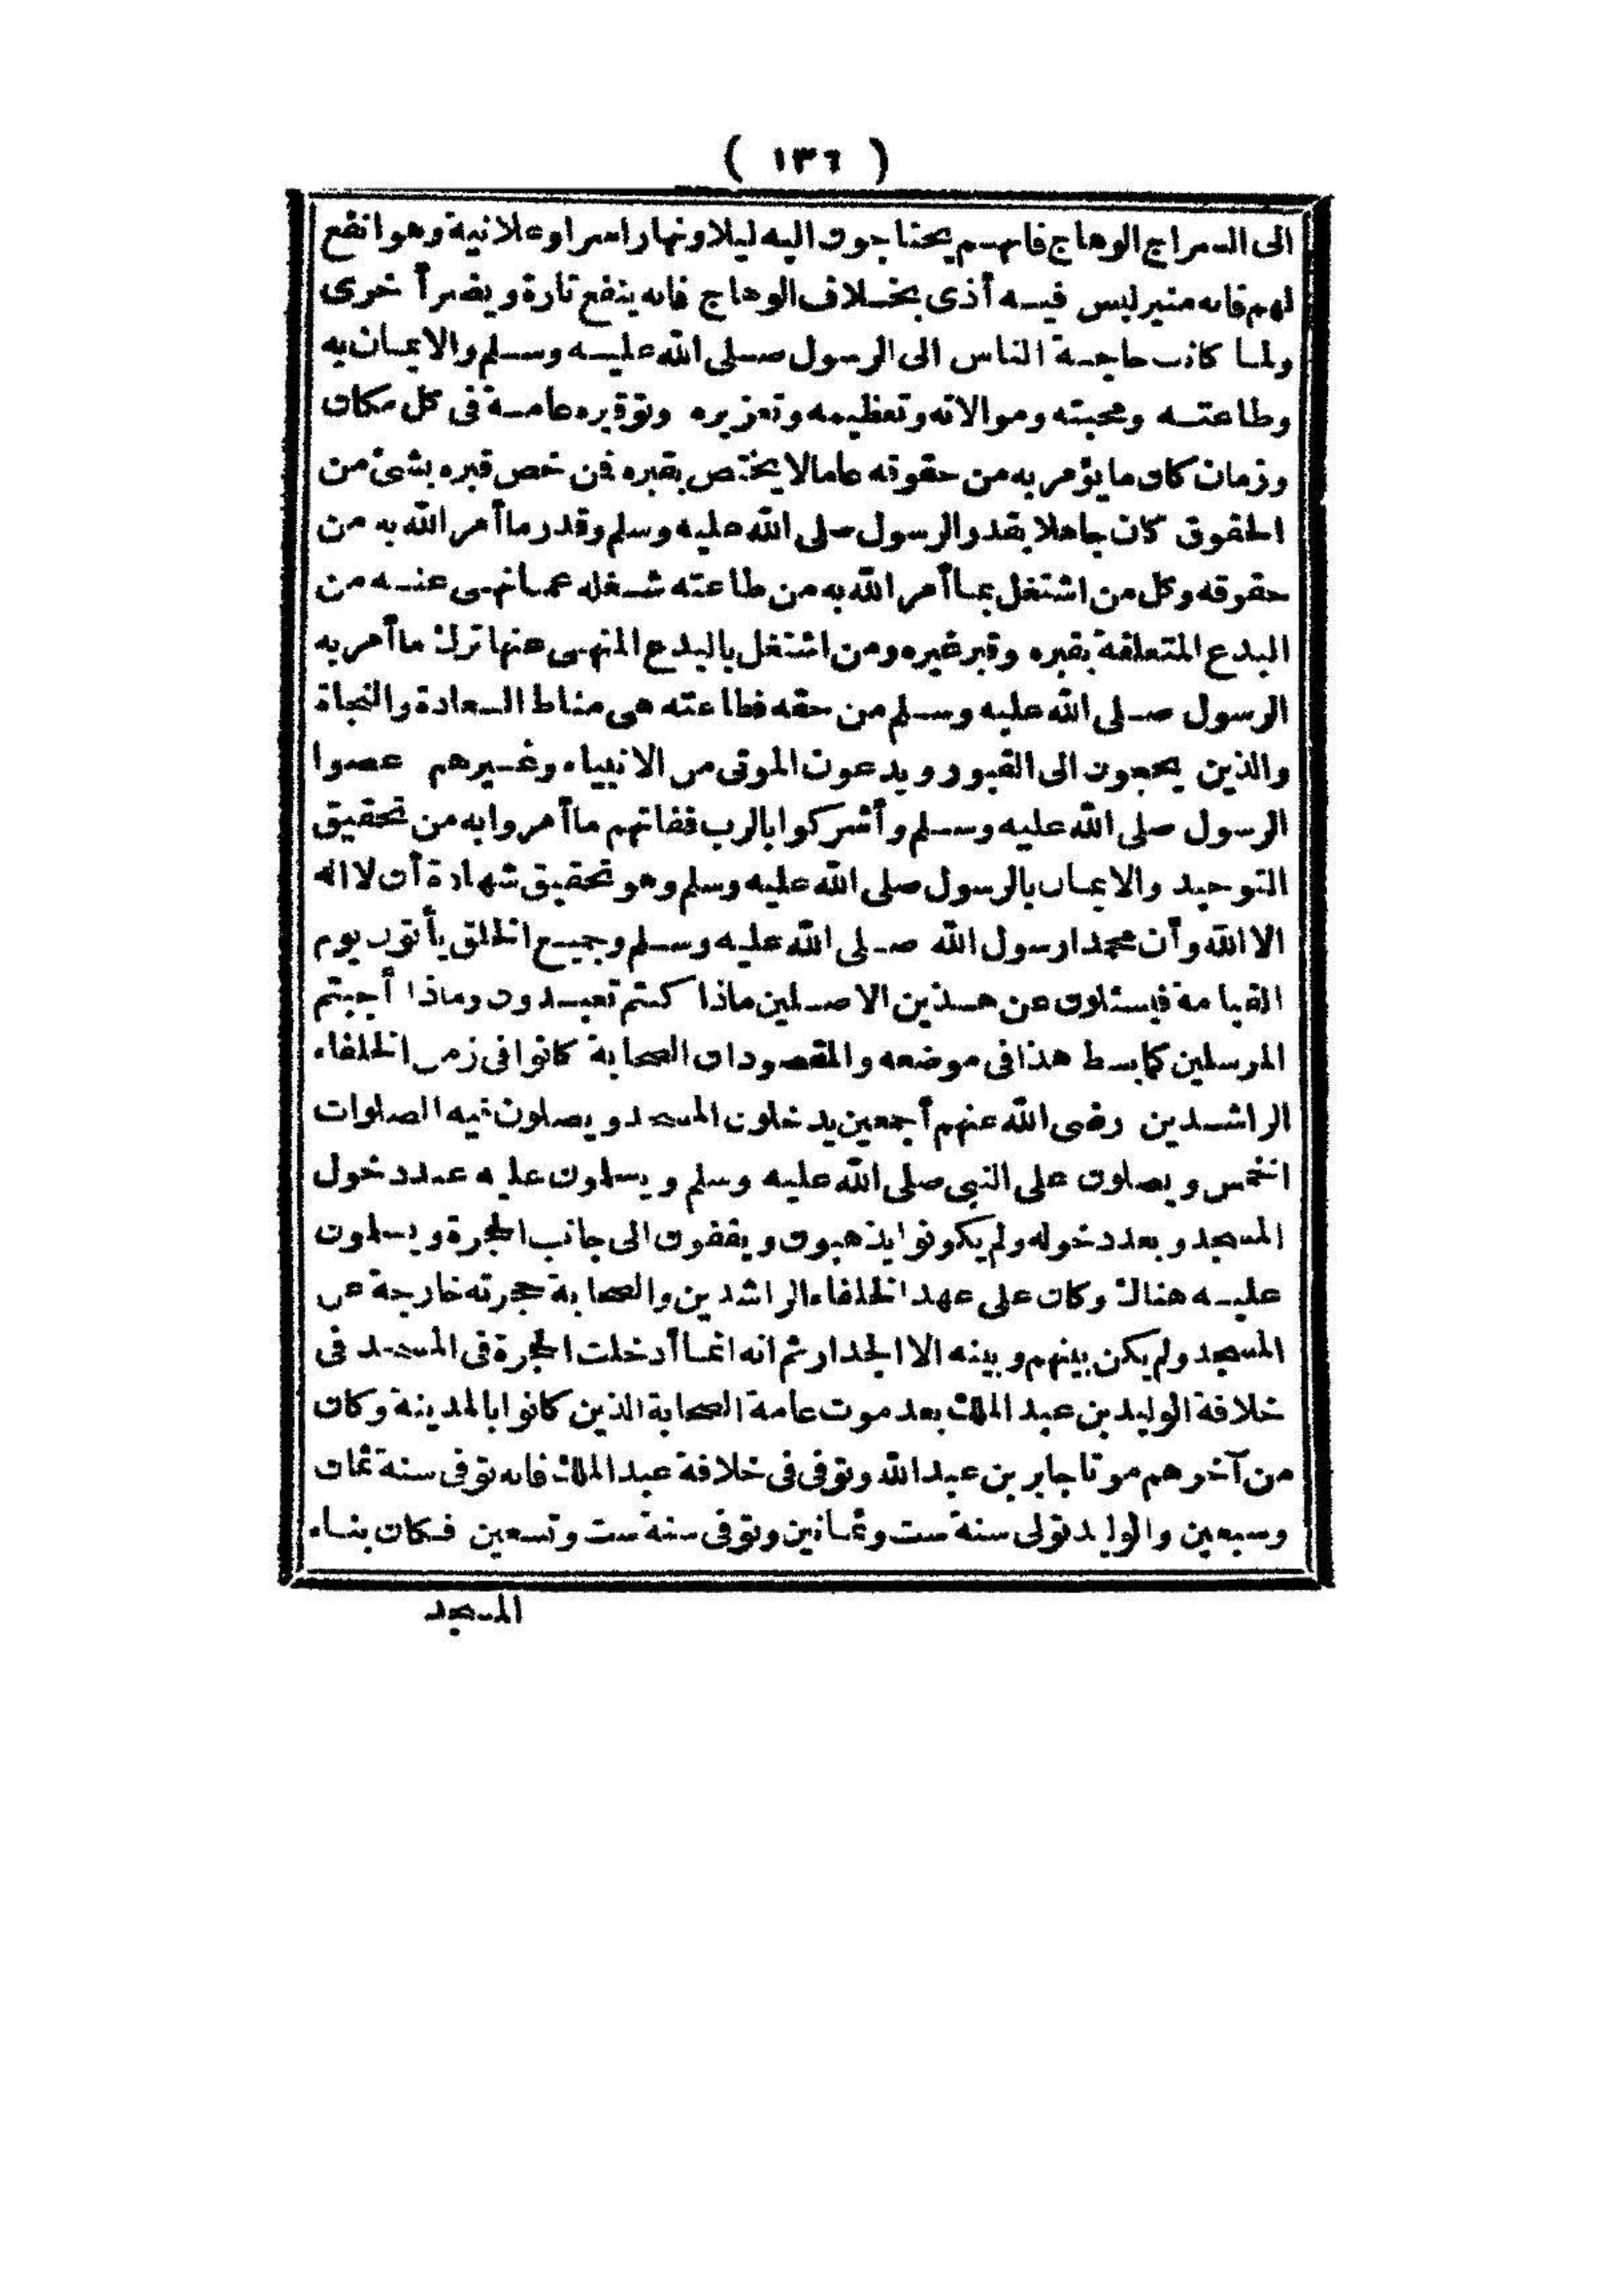 ( ١٣٦ )
الى السراج الوهاج فانهم يحتاجون اليه ليلا ونهارا سرا وعلانية وهو انفع
لهم فانه منير ليس فيه أذى بخلاف الوهاج فانه ينفع تارة ويضر أخرى
ولما كانت حاجة الناس الى الرسول صلى الله عليه وسلم والايمان به
وطاعته ومحبته وموالاته وتعظيمه وتعزيره وتوقيره عامة فى كل مكان
وزمان كان ما يؤمر به من حقوقه عاما لا يختص بقبره فمن خص قبره بشئ من
الحقوق كان جاهلا بقدر الرسول صلى الله عليه وسلم وقدر ما أمر الله به من
حقوقه وكل من اشتغل بما أمر الله به من طاعته شغله عما نهى عنه من
البدع المتعلقة بقبره وقبر غيره ومن اشتغل بالبدع المنهى عنها ترك ما أمر به
الرسول صلى الله عليه وسلم من حقه فطاعته هى مناط السعادة والنجاة
والذين يحجون الى القبور ويدعون الموتى من الانبياء وغيرهم عصوا
الرسول صلى الله عليه وسلم وأشركوا بالرب ففاتهم ما أمروا به من تحقيق
التوحيد والايمان بالرسول صلى الله عليه وسلم وهو تحقيق شهادة أن لا اله
الا الله وأن محمدا رسول الله صلى الله عليه وسلم وجميع الخلق يأتون يوم
القيامة فيسئلون عن هذين الاصلين ماذا كنتم تعبدون وماذا أجبتم
المرسلين كما بسط هذا فى موضعه والمقصود ان الصحابة كانوا فى زمن الخلفاء
الراشدين رضى الله عنهم أجمعين يدخلون المسجد ويصلون فيه الصلوات
الخمس ويصلون على النبى صلى الله عليه وسلم ويسلمون عليه عند دخول
المسجد وبعد دخوله ولم يكونوا يذهبون ويقفون الى جانب الحجرة ويسلمون
عليه هناك وكان على عهد الخلفاء الراشدين والصحابة حجرته خارجة عن
المسجد ولم يكن بينهم وبينه الا الجدار ثم انه انما أدخلت الحجرة فى المسجد فى
خلافة الوليد بن عبد الملك بعد موت عامة الصحابة الذين كانوا بالمدينة وكان
من آخرهم موتا جابر بن عبد الله وتوفى فى خلافة عبد الملك فانه توفى سنة ثمان
وسبعين والوليد تولى سنة ست وثمانين وتوفى سنة ست وتسعين فكان بناء
المسجد